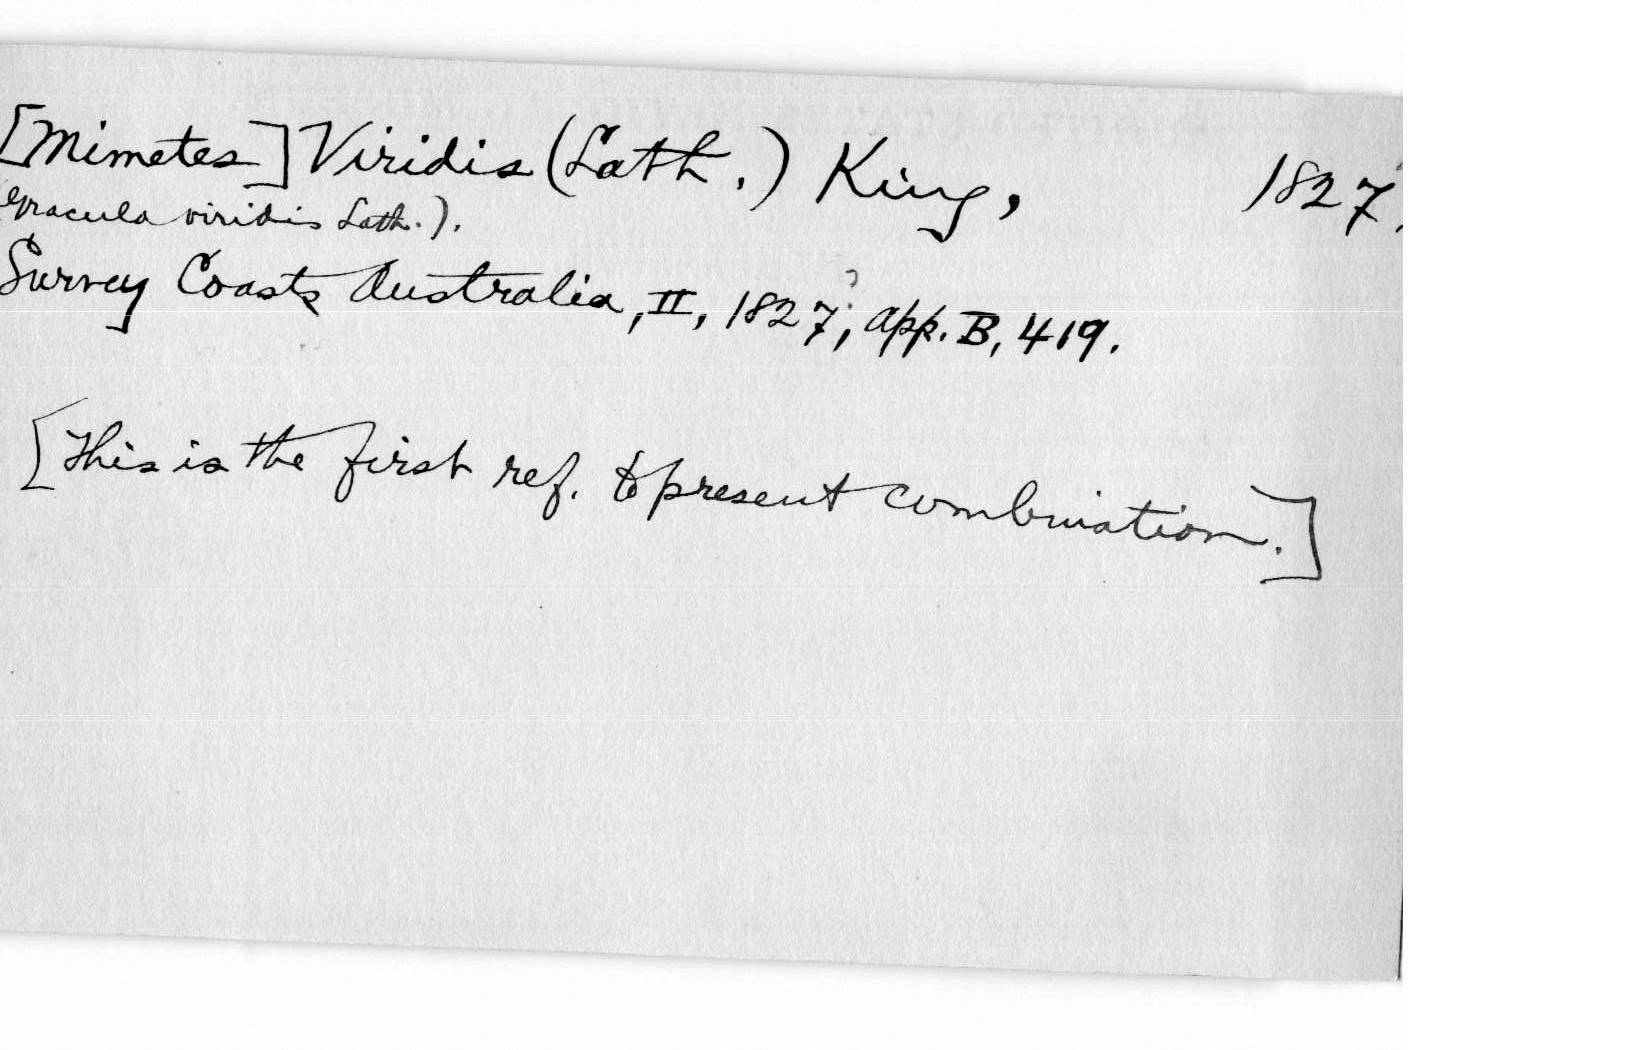 [Mimetes] Viridis (Lath.) King, 1827.
(Gracula viridis Lath.).
Survey Coasts Australia, II, 1827, app. B, 419.
[This is the first ref. to present combination.]